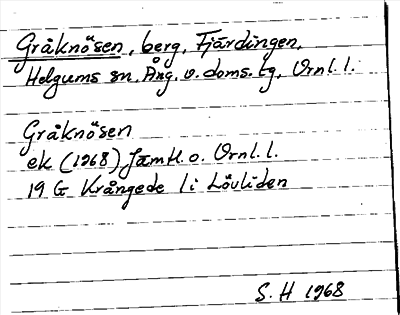 Gråknösen, berg, Fjärdingen,
Helgums sn. Ång. v. doms. tg, Vrnl. l.
Gråknösen
ek (1968) samtl. o. Vrnl. l.
19 G Krångede 1i Lövliden
S. H 1968